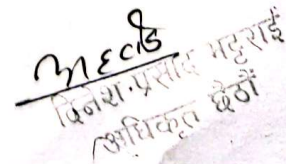 दिनेश प्रसाद भट्टराई
अधिकृत छैठौं